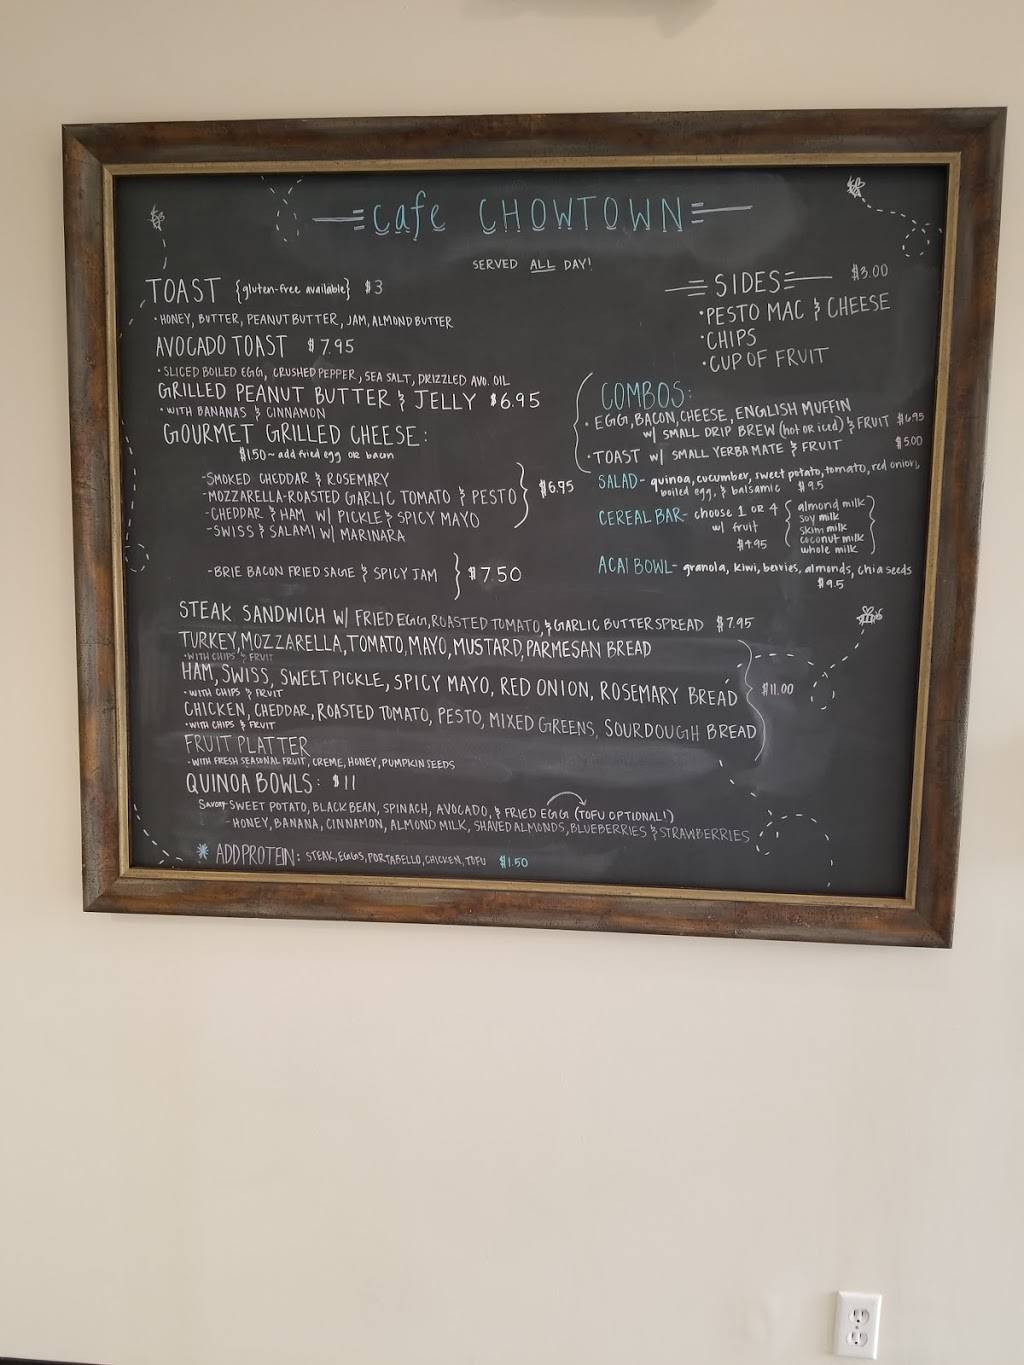 Cafe CHOWTOWN
SERVED ALL DAY!
TOAST {gluten-free available} $3
• HONEY, BUTTER, PEANUT BUTTER, JAM, ALMOND BUTTER
AVOCADO TOAST $7.95
• SLICED BOILED EGG, CRUSHED PEPPER, SEA SALT, DRIZZLED AVO. OIL
GRILLED PEANUT BUTTER & JELLY $6.95
• WITH BANANAS & CINNAMON
GOURMET GRILLED CHEESE:
$1.50~ add fried egg or bacon
-SMOKED CHEDDAR & ROSEMARY
-MOZZARELLA-ROASTED GARLIC TOMATO & PESTO
-CHEDDAR & HAM W/ PICKLE & SPICY MAYO
-SWISS & SALAMI W/ MARINARA
$6.95
-BRIE BACON FRIED SAGE & SPICY JAM $7.50
SIDES $3.00
• PESTO MAC & CHEESE
• CHIPS
• CUP OF FRUIT
COMBOS:
• EGG, BACON, CHEESE, ENGLISH MUFFIN
w/ SMALL DRIP BREW (hot or iced) & FRUIT $6.95
• TOAST w/ SMALL YERBA MATE & FRUIT $5.00
SALAD- quinoa, cucumber, sweet potato, tomato, red onion,
boiled egg, & balsamic $9.5
CEREAL BAR- choose 1 OR 4
w/ fruit
$4.95
almond milk
soy milk
skim milk
coconut milk
whole milk
ACAI BOWL- granola, kiwi, berries, almonds, chia seeds
$9.5
STEAK SANDWICH W/ FRIED EGG, ROASTED TOMATO, & GARLIC BUTTER SPREAD $7.95
TURKEY, MOZZARELLA, TOMATO, MAYO, MUSTARD, PARMESAN BREAD
• WITH CHIPS & FRUIT
HAM, SWISS, SWEET PICKLE, SPICY MAYO, RED ONION, ROSEMARY BREAD
• WITH CHIPS & FRUIT
CHICKEN, CHEDDAR, ROASTED TOMATO, PESTO, MIXED GREENS, SOURDOUGH BREAD
• WITH CHIPS & FRUIT
$11.00
FRUIT PLATTER
• WITH FRESH SEASONAL FRUIT, CREME, HONEY, PUMPKIN SEEDS
QUINOA BOWLS: $11
Savory-SWEET POTATO, BLACK BEAN, SPINACH, AVOCADO, & FRIED EGG (TOFU OPTIONAL!)
-HONEY, BANANA, CINNAMON, ALMOND MILK, SHAVED ALMONDS, BLUEBERRIES & STRAWBERRIES
* ADD PROTEIN: STEAK, EGGS, PORTABELLO, CHICKEN, TOFU $1.50